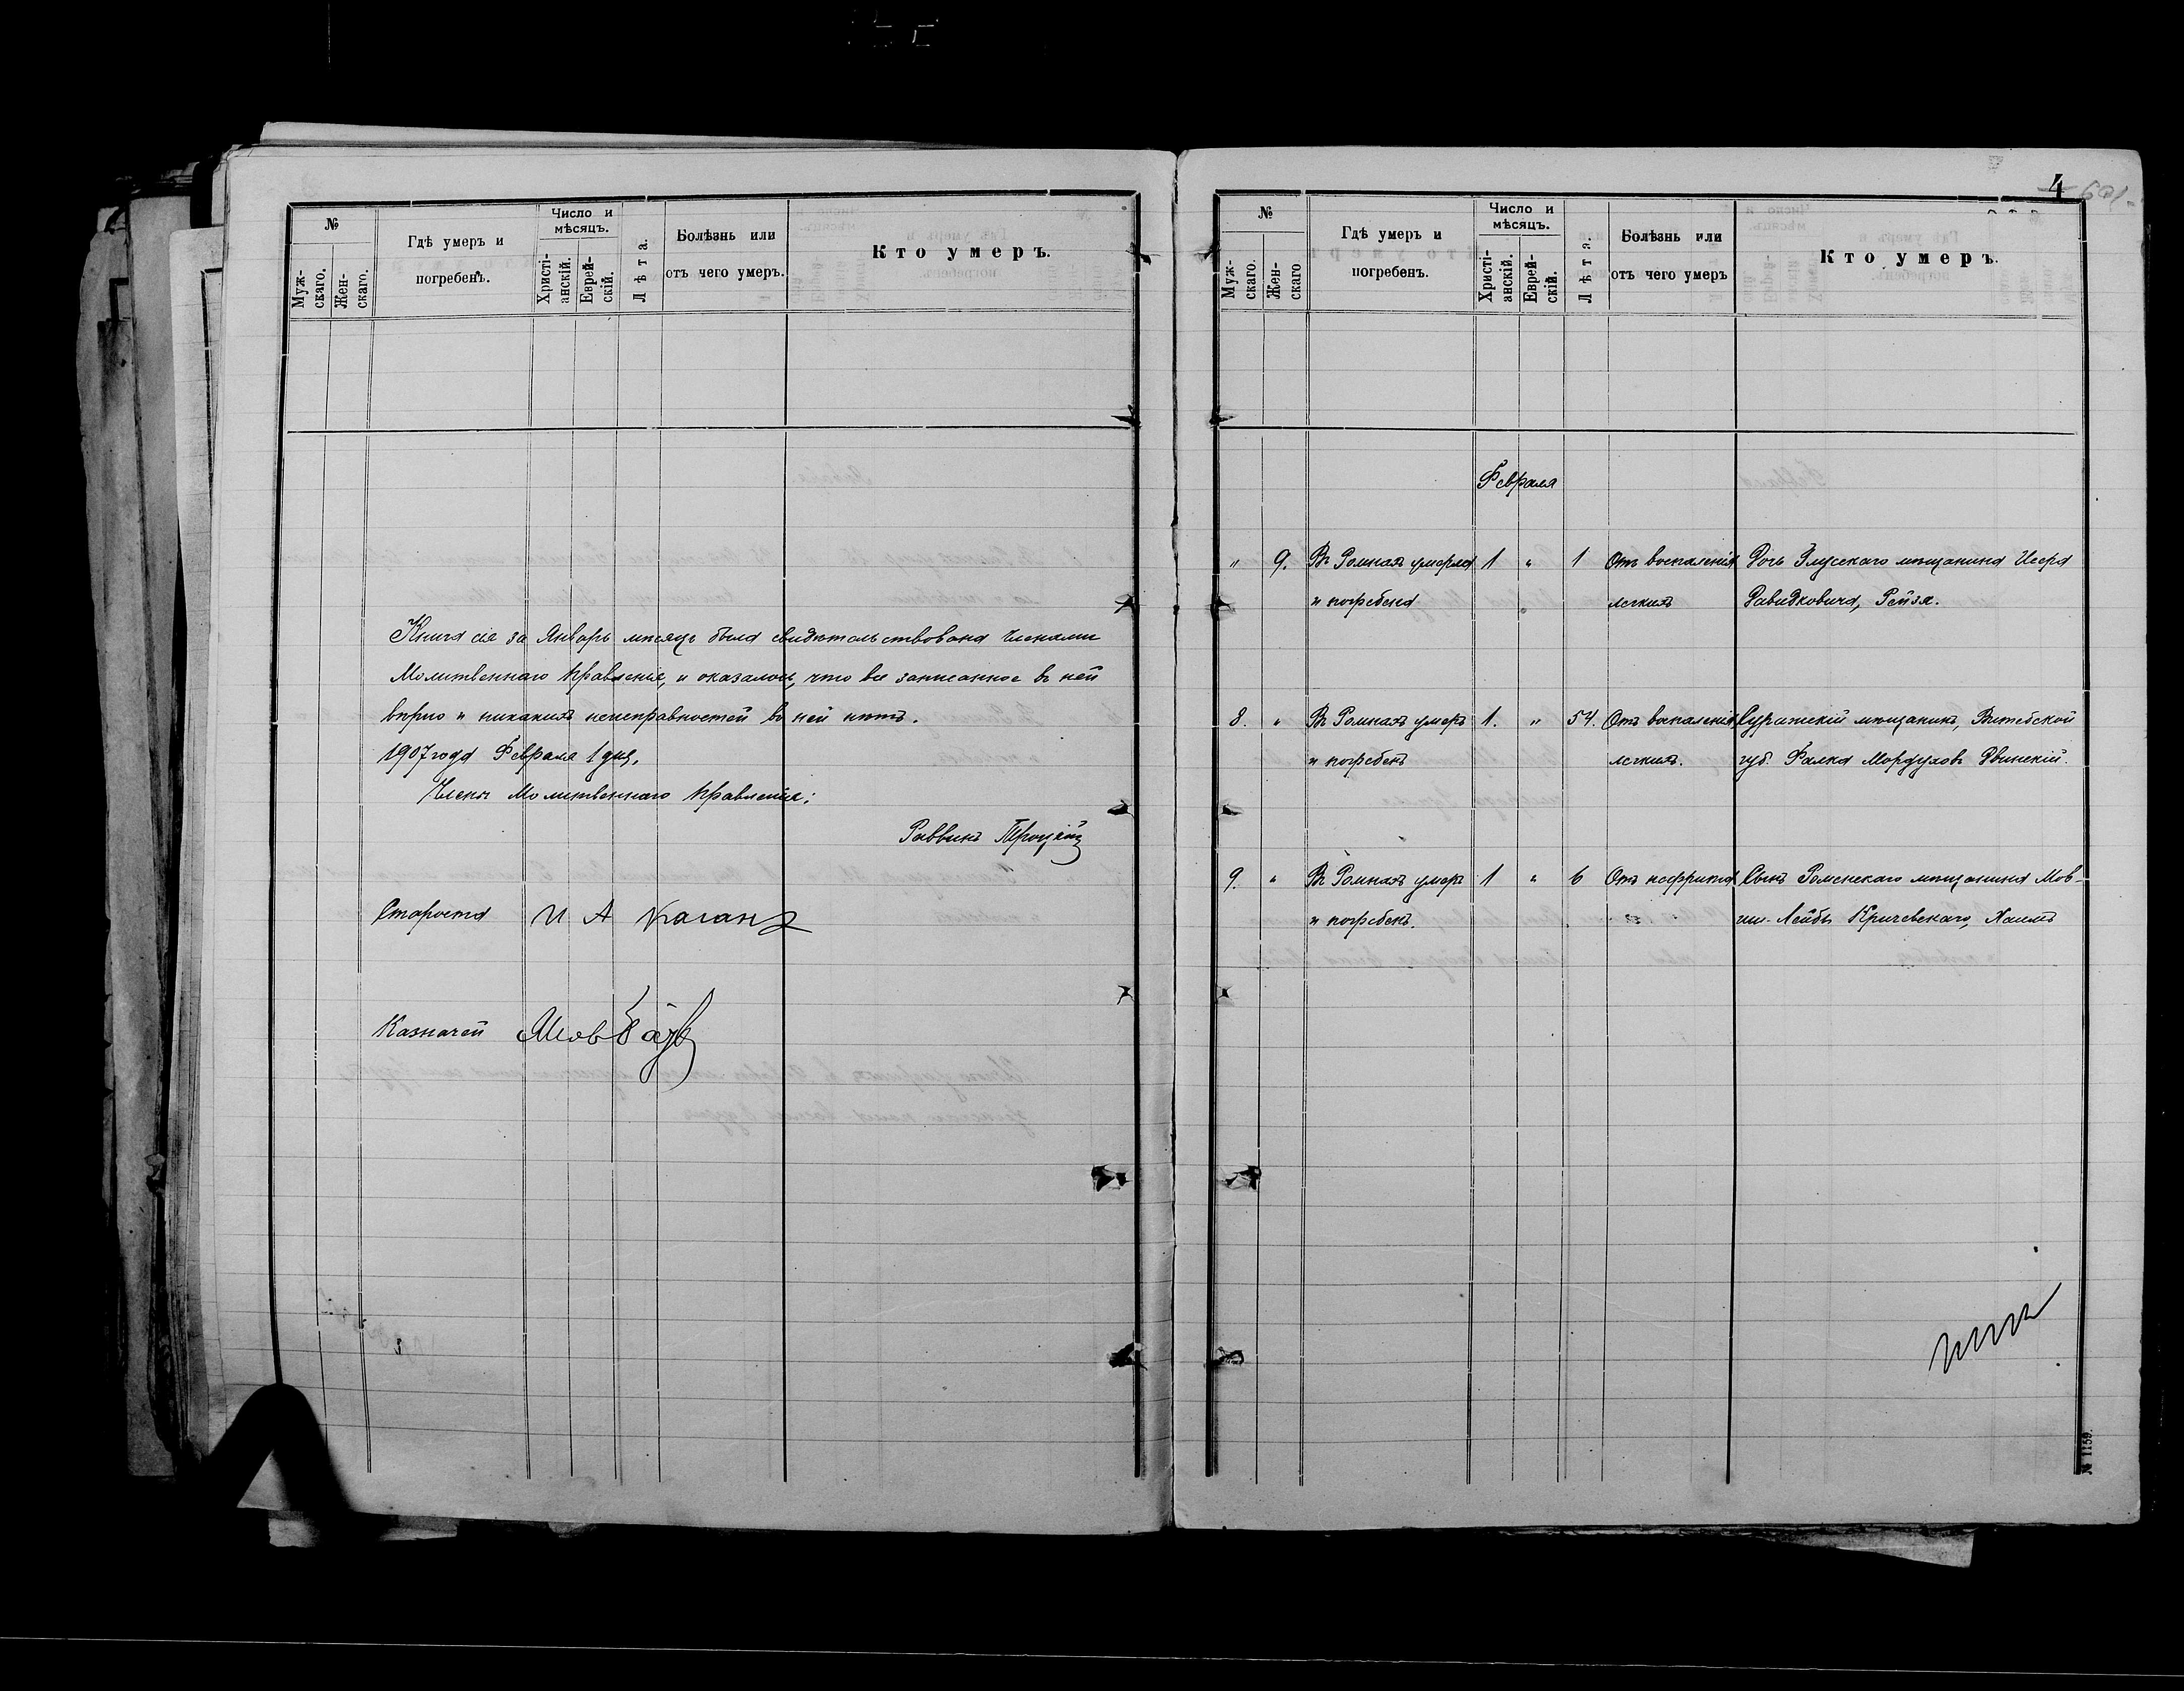 №
Муж-
скаго.
Жен-
скаго.
Гдѣ умеръ и
погребенъ.
Число и
мѣсяцъ.
Христі-
анскій.
Еврей-
скій.
Лѣта.
Болѣзнь или
отъ чего умеръ.
Кто умеръ.
Книга сія за Январь мѣсяцъ была свидѣтельствована членами
Молитвеннаго Правленія, и оказалось, что все записанное въ ней
вѣрно и никакихъ неисправностей въ ней нѣтъ.
1907 года Февраля 1 дня.
Члены Молитвеннаго Правленія:
Раввинъ Троцкій
Староста И А Каганъ
Казначей
4
№
Муж-
скаго.
Жен-
скаго
Гдѣ умеръ и
погребенъ.
Число и
мѣсяцъ.
Христі-
анскій.
Еврей-
скій.
Лѣта.
Болѣзнь или
отъ чего умеръ
Кто умеръ.
Февраля
" 9. Въ Ромнахъ умерла 1 " 1 Отъ воспаленія Дочь Глусскаго мѣщанина Исера
и погребена легкихъ Давидковича, Рейзя.
8. " Въ Ромнахъ умеръ 1. " 54. Отъ воспаленія Суражскій мѣщанинъ, Витебской
и погребенъ легкихъ. губ. Фалка Мордуховъ Двинскій.
9. " Въ Ромнахъ умеръ 1 " 6 Отъ нефрита Сынъ Роменскаго мѣщанина Мов-
и погребенъ. ши-Лейбы Кричевскаго, Хаимъ
№ 1159.